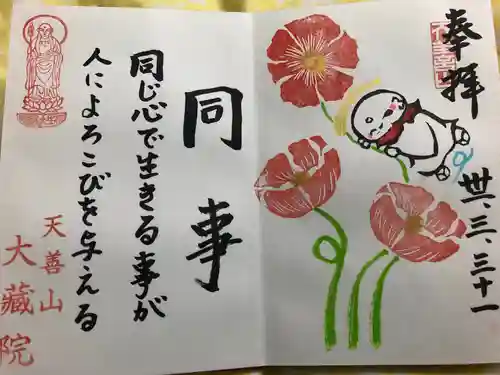 奉拝
卅一、三、三十一
同事
同じ心で生きる事が
人によろこびを与える
天善山
大蔵院